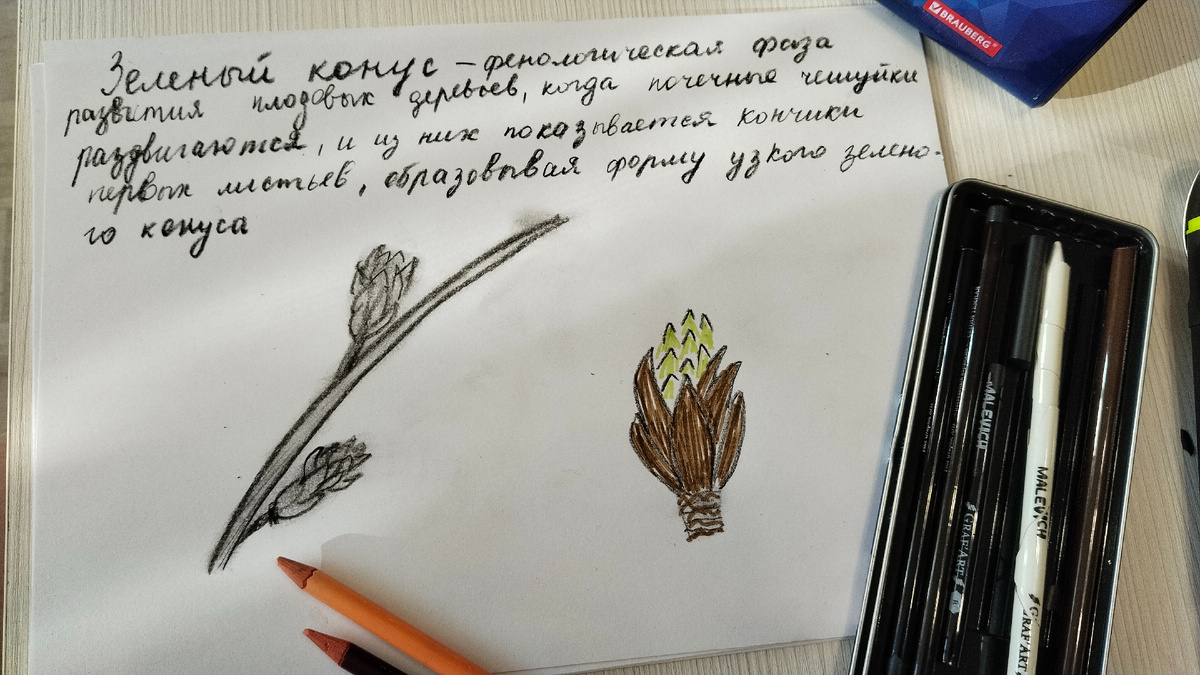 Зеленый конус – фенологическая фаза
развития плодовых деревьев, когда почечные чешуйки
раздвигаются, и из них показывается кончики
первых листьев, образовывая форму узкого зелено-
го конуса
BRAUBERG
MALEVICH
GRAF'ART
MALEVICH
GRAF'ART